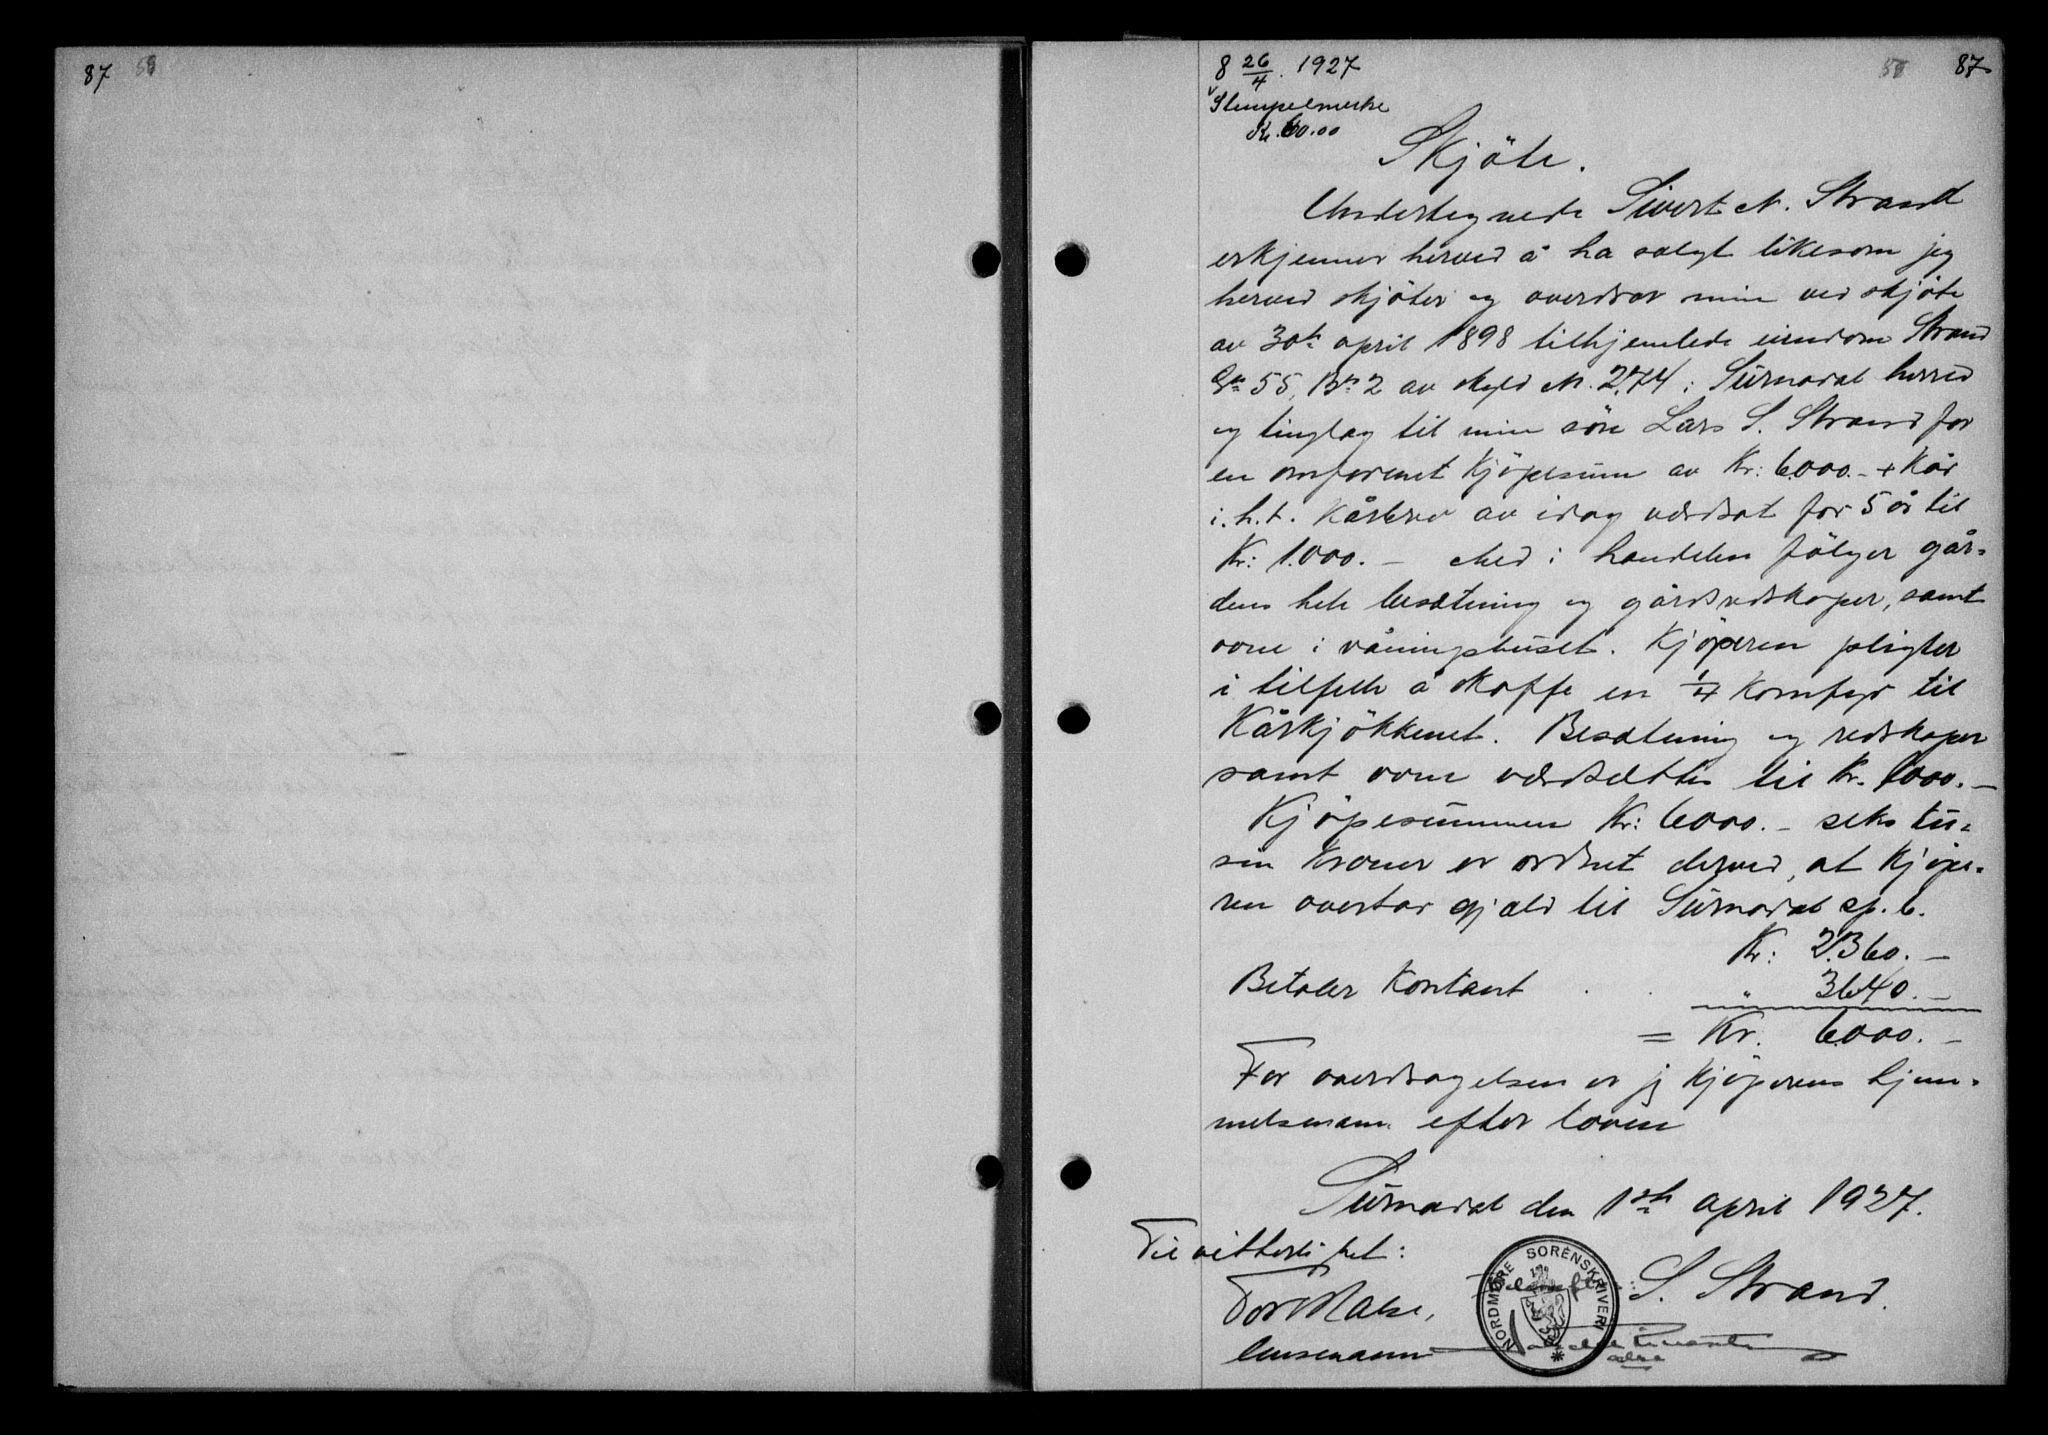 87 58
8 26/4. 1927
58 87
Stempelmerke
Kr. 60.00
Skjöte.
Undertegnede Sivert M. Strand
erkjenner herved å ha solgt likesom jeg
herved skjöter og overdrar min ved skjöte
av 30te april 1898 tilhjemlede eiendom Strand
Gn 55, Bn 2 av skyld M. 2,74 i Surnadal herred
og tinglag til min sön Lars S. Strand for
en omforenet Kjöpesum av Kr: 6000.- + Kår
i.h.t. Kårbrev av idag værdsat for 5 år til
Kr: 1.000. - Med i handelen fölger går-
dens hele besætning og gårdsredskaper, samt
ovne i våningshuset. Kjöperen pligter
i tilfelle å skaffe en 1/4 Komfyr til
Kårkjökkenet. Besætning og redskaper
samt ovne værdsættes til Kr. 1000.-
Kjöpesummen Kr: 6000.- seks tu-
sen Kroner er ordnet derved, at Kjöpe-
ren overtar gjæld til Surnadal sp.b.
Kr: 2.360.-
Betaler Kontant . . " 3640.-
= Kr. 6000.-
For overdragelsen er jeg Kjöperens hjem-
melsmann efter loven
Surnadal den 1ste april 1927.
Til vitterlighet:
S. Strand.
Tor Halse,
lensmann
NORDMØRE SORENSKRIVERI